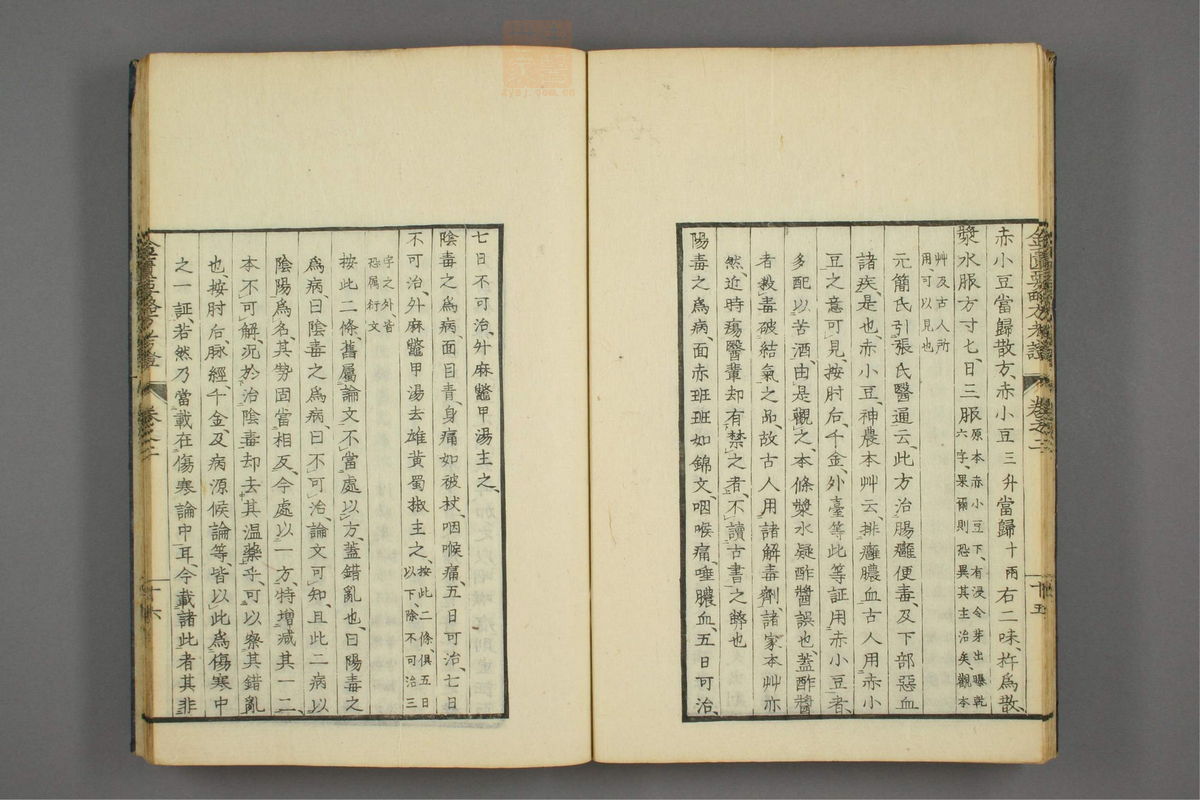 赤小豆當歸散方、赤小豆三升當歸十兩右二味、杵爲散、
漿水服方寸匕、日三服原本赤小豆下、有浸令芽出曝乾六字、果爾則恐異其主治矣、觀本
艸及古人所用、可以見也
元簡氏引張氏醫通云、此方治腸癰便毒、及下部惡血
諸疾、是也、赤小豆、神農本艸云、排癰膿血、古人用赤小
豆之意可見、按肘后、千金、外臺等、此等証用赤小豆者、
多配以苦酒、由是觀之、本條漿水疑酢醬誤也、蓋酢醬
者、敗毒破結氣之品、故古人用諸解毒劑、諸家本艸亦
然、近時瘍醫輩却有禁之者、不讀古書之弊也
陽毒之爲病、面赤班班如錦文、咽喉痛、唾膿血、五日可治、
金匱要略方考證
卷之三
十五
七日不可治、升麻鼈甲湯主之、
陰毒之爲病、面目青、身痛如被杖、咽喉痛、五日可治、七日
不可治、升麻鼈甲湯去雄黄蜀椒主之、按此二條、俱五日以下、除不可治三
字之外、皆恐属衍文
按此二條、舊屬論文、不當處以方、蓋錯亂也、曰陽毒之
爲病、曰陰毒之爲病、曰不可治、論文可知、且此二病以
陰陽爲名、其勢固當相反、今處以一方、特增減其一二、
本不可解、况於治陰毒却去其温藥乎、可以察其錯亂
也、按肘后、脉經、千金、及病源候論等、皆以此爲傷寒中
之一証、若然乃當載在傷寒論中耳、今載諸此者、其非
金匱要略方考證
卷之三
十六